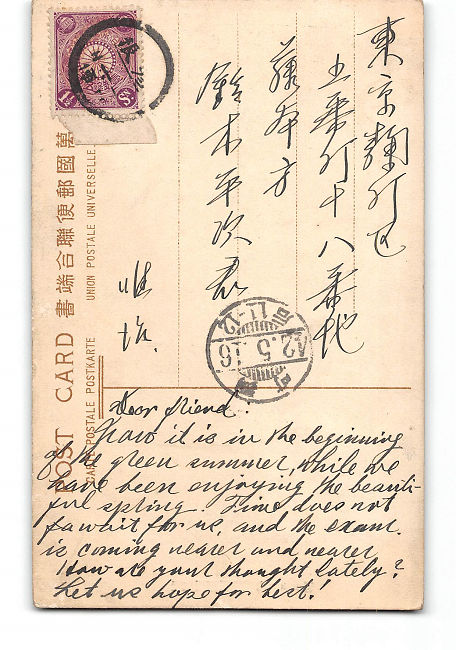 東京麹町区
五番町十八番地
藤本方
鈴木平次君
萬國郵便聯合端書
UNION POSTALE UNIVERSELLE.
POST CARD
CARTE POSTALE POSTKARTE
42.5.16
11-12
Dear friend:
Now it is in the beginning
of the green summer, while we
have been enjoying the beauti-
ful spring. Time does not
await for us, and the exam.
is coming nearer and nearer
How are your thought lately?
Let us hope for best!